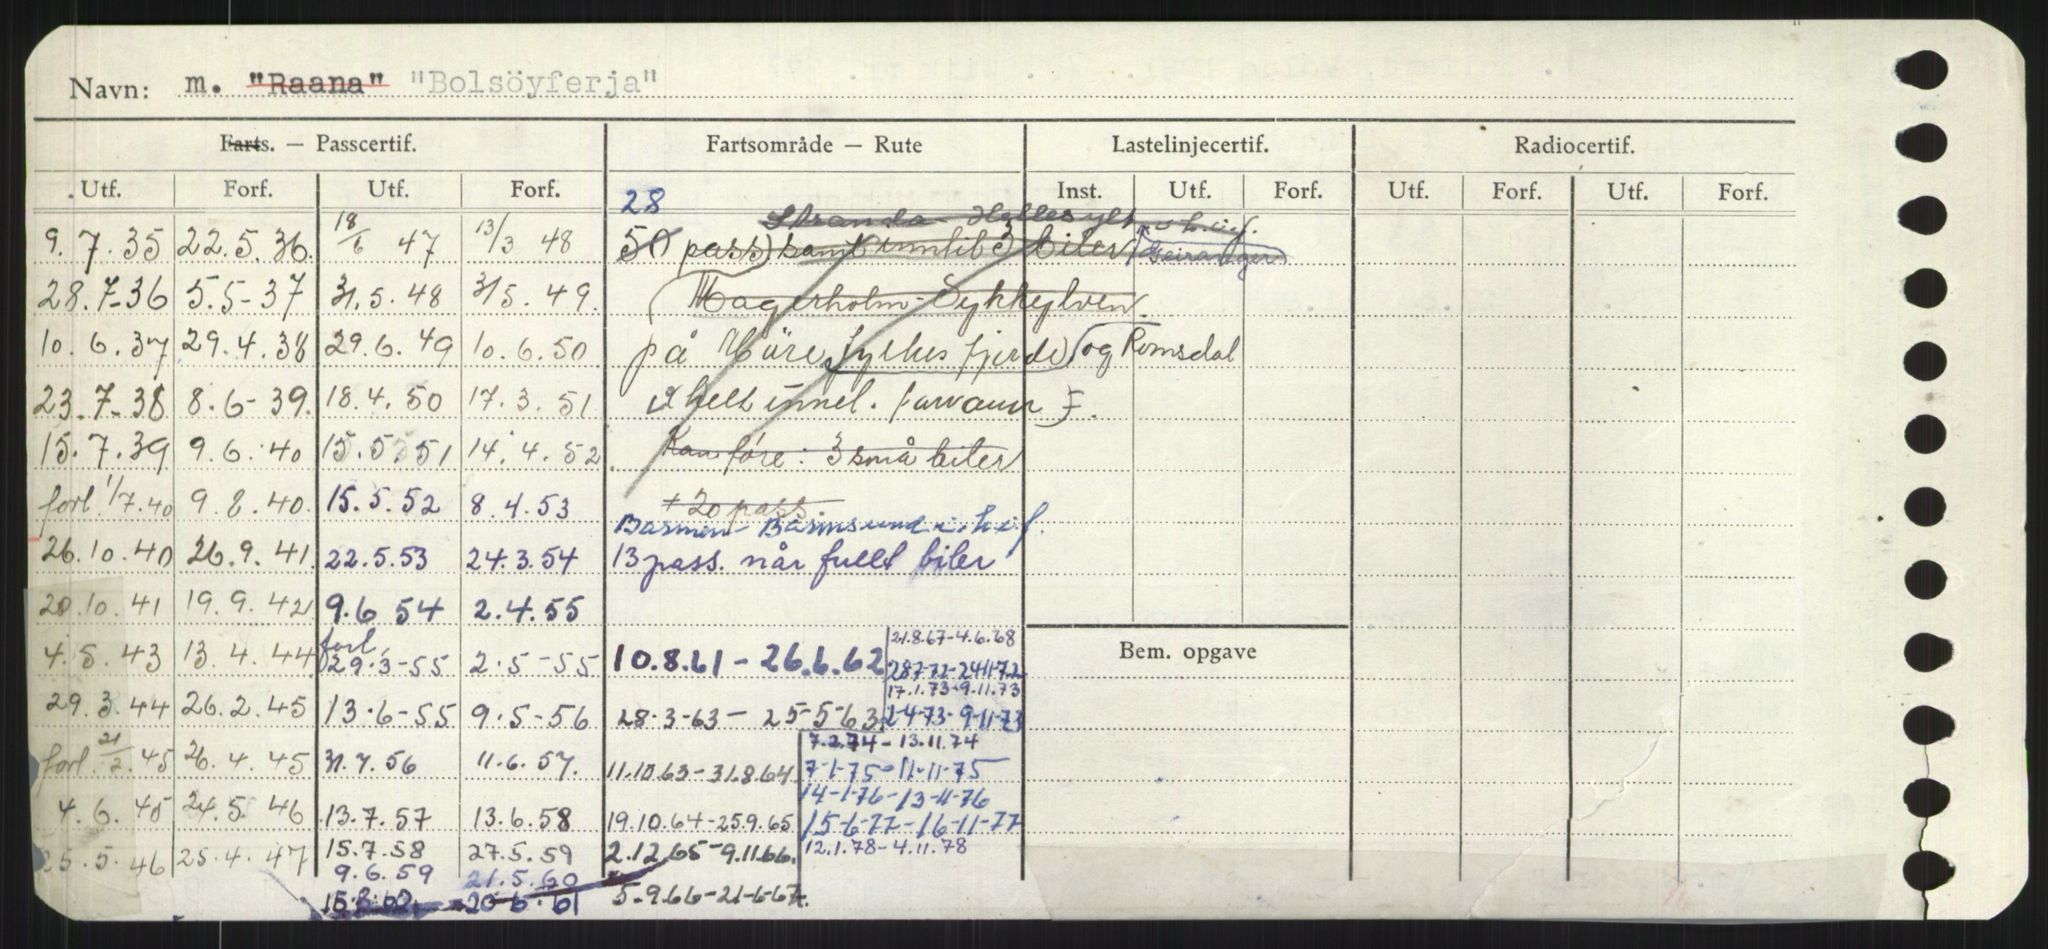 Navn: m. "Raana" "Bolsöyferja"
Farts. — Passcertif. Fartsområde — Rute Lastelinjecertif. Radiocertif.
Utf. Forf. Utf. Forf. Inst. Utf. Forf. Utf. Forf. Utf. Forf.
28
Stranda - Hellesylt
9.7.35 22.5.36. 18/6 47 13/3 48 50 pass) samt inntil 3 biler Geiranger
28.7-36 5.5-37 31.5.48 31/5.49. Magerholm - Sykkylven.
10.6.37 29.4.38 29.6.49 10.6.50 på Möre fylkes fjorde og Romsdal
23.7-38 8.6-39. 18.4.50 17.3.51 helt innel. farvann
15.7.39 9.6.40 15.5.51 14.4.52 Kan före: 3 små biler
forl. 1/7.40 9.8.40. 15.5.52 8.4.53 + 20 pass
Barmen - Barmsund i. h. i. f.
26.10.40 26.9.41. 22.5.53 24.3.54 13 pass. når fullt biler
20.10.41 19.9.42 9.6 54 2.4.55
forl. 21.8.67-4.6.68
4.5.43 13.4.44 29.3-55 2.5-55 10.8.61 - 26.6.62 28.7-72-24.11-72
Bem. opgave
17.1.73-9.11.73
29.3.44 26.2.45 13.6-55 9.5-56 28.3-63 - 25-5-63 2-4-73-9-11-73
7.2.74 - 13.11.74
forl. 21/2.45 26.4.45 31.7.56 11.6.57. 11.10.63-31.8.64 7-1-75-11-11-75
14-1-76-13-11-76
4.6.45 24.5.46 13.7.57 13.6.58 19.10.64-25.9.65 15-6-77-16-11-77
25.5.46 25.4.47 15.7.58 27.5.59 2.12.65-9.11.66. 12.1.78-4.11.78
9.6.59 21.5.60
15.8.60. 20.6.61 5.9.66-21-6-67.